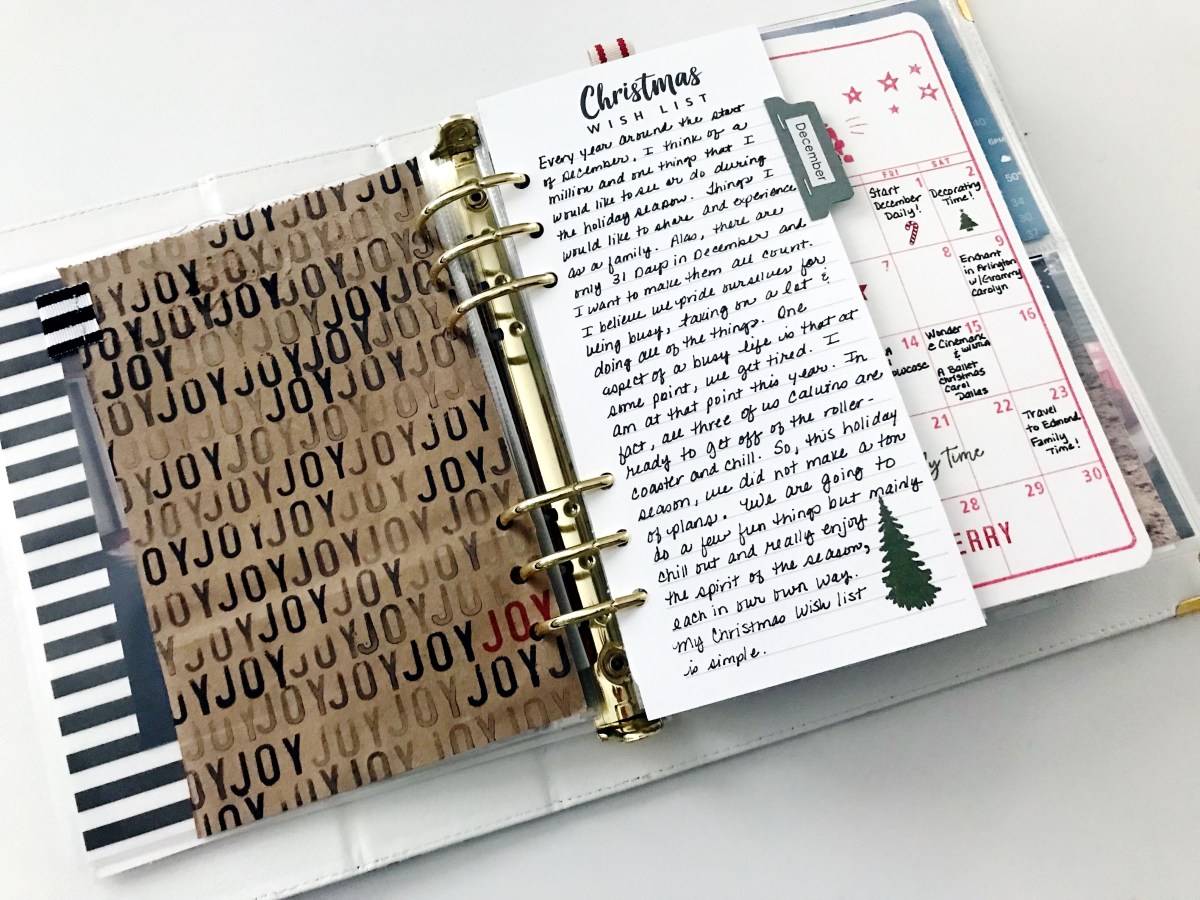 JOYJOY
JOYJOYJOYJOY
JOYJOYJOYJOY
JOYJOYJOYJOY
JOYJOYJOYJOY
JOY
JOYJOYJOYJOY
JOYJOYJOYJOY
JOYJOYJOYJOY
JOYJOYJOYJOY
JOYJOYJOYJOY
JOYJOYJOYJOY
JOYJOYJOYJOY
JOYJOYJOYJOY
JOYJOYJOYJOY
JOYJOYJOYJOY
JOYJOYJOYJOY
JOYJOYJOY
JOY
Christmas
WISH LIST
Every year around the start
of December, I think of a
million and one things that I
would like to see or do during
the holiday season. Things I
would like to share and experience
as a family. Alas, there are
only 31 Days in December and
I want to make them all count.
I believe we pride ourselves for
being busy, taking on a lot &
doing all of the things. One
aspect of a busy life is that at
some point, we get tired. I
am at that point this year. In
fact, all three of us Calvins are
ready to get off of the roller-
coaster and chill. So, this holiday
season, we did not make a ton
of plans. We are going to
do a few fun things but mainly
chill out and really enjoy
the spirit of the season,
each in our own way.
My Christmas Wish list
is simple.
December
FRI
SAT
1
Start
December
Daily!
2
Decorating
Time!
7
8
9
Enchant
in Arlington
w/Grammy
Carolyn
14
15
Wonder
@ Cinemark
A Ballet
Christmas
Carol
Dallas
16
21
22
23
Travel
to Edmond
Family
Time!
Time
28
29
30
ERRY
40
6PM
50°
34
37
30